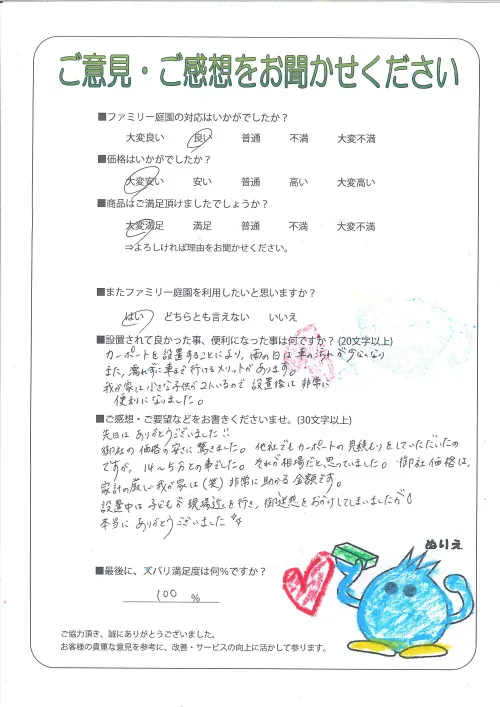 ご意見・ご感想をお聞かせください
■ファミリー庭園の対応はいかがでしたか？
大変良い 良い 普通 不満 大変不満
■価格はいかがでしたか？
大変安い 安い 普通 高い 大変高い
■商品はご満足頂けましたでしょうか？
大変満足 満足 普通 不満 大変不満
⇒よろしければ理由をお聞かせください。
■またファミリー庭園を利用したいと思いますか？
はい どちらとも言えない いいえ
■設置されて良かった事、便利になった事は何ですか？(20文字以上)
カーポートを設置することにより、雨の日は車の汚れが少なくなり
また、濡れずに車まで行けるメリットがあります。
我が家は小さな子供が2人いるので設置後は非常に
便利になりました。
■ご感想・ご要望などをお書きくださいませ。(30文字以上)
先日はありがとうございました!!
御社の価格の安さに驚きました。他社でもカーポートの見積もりをしていただいたの
ですが、14～5万との事でした。それが相場だと、思っていました。御社価格は、
家計の厳しい我が家は(笑)非常に助かる金額です。
設置中は子どもが現場近を行き、御迷惑をおかけしてしまいましたが
本当にありがとうございました
ぬりえ
■最後に、ズバリ満足度は何%ですか？
100 %
ご協力頂き、誠にありがとうございました。
お客様の貴重な意見を参考に、改善・サービスの向上に活かして参ります。